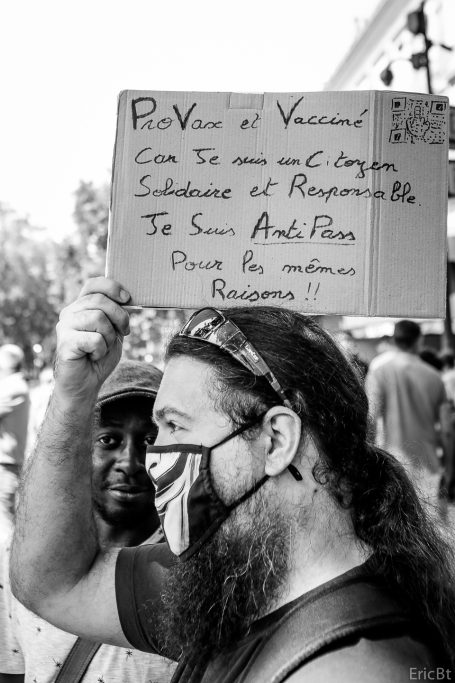 ProVax et Vacciné
Car Je suis un Citoyen
Solidaire et Responsable.
Je Suis AntiPass
Pour les mêmes
Raisons !!
EricBt